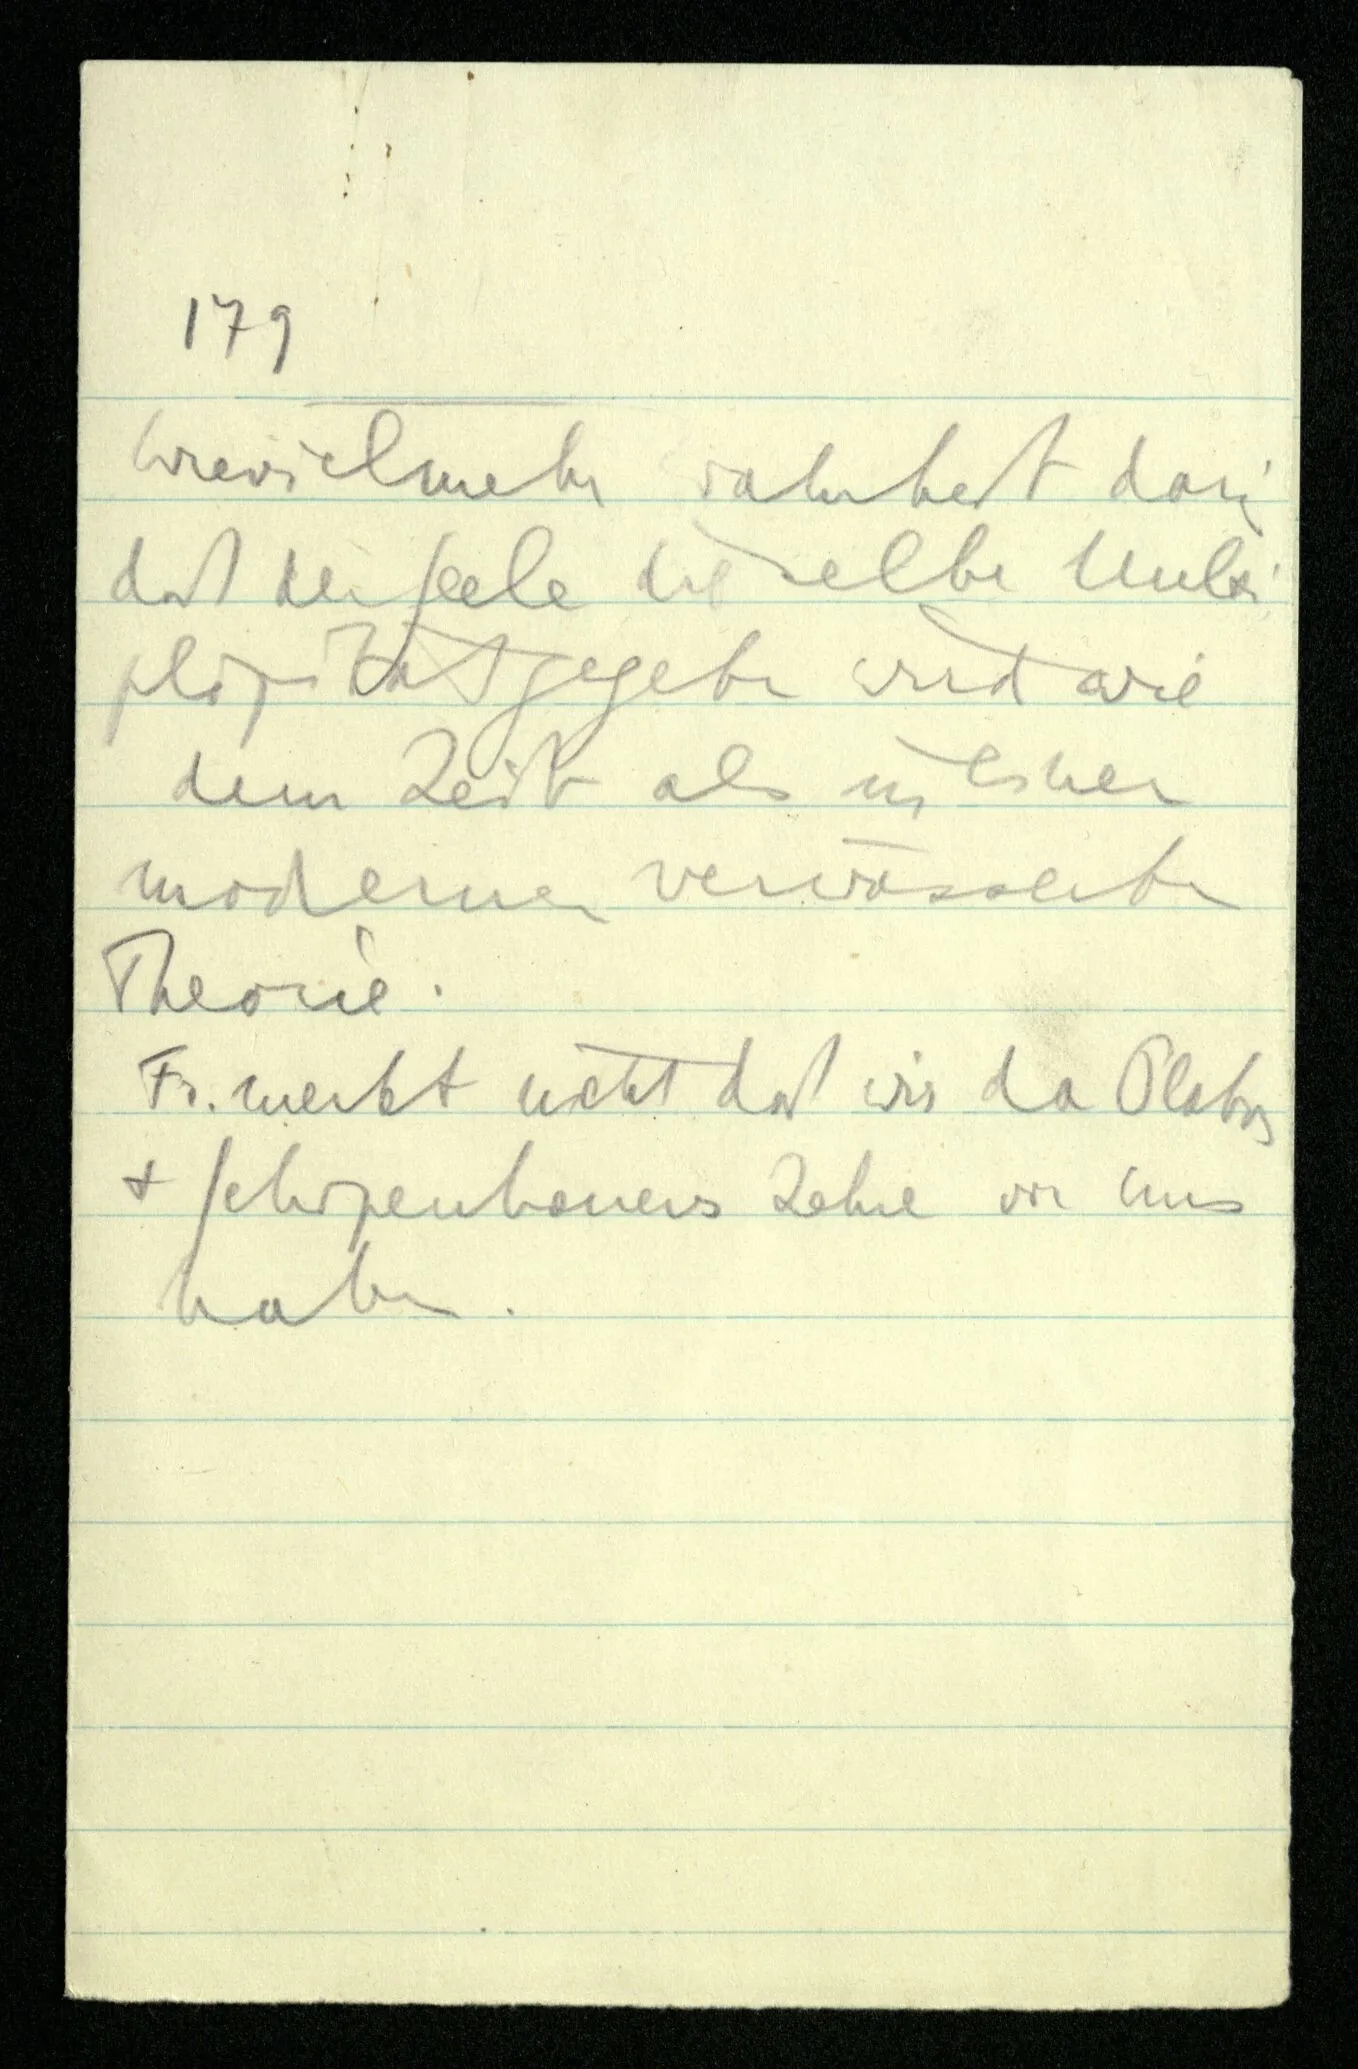 179
Wievielmehr Wahrheit darin
dass der Seele dieselbe Multi
plizität gegeben wird wie
dem Zeit als in einer
modernen verwässerten
Theorie.
Fr. merkt nicht dass wir da Platos
+ Schopenhauers Lehre vor uns
haben.